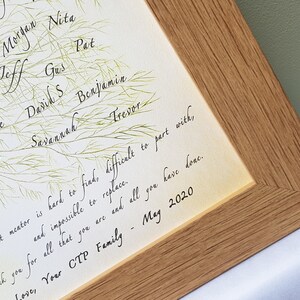 Morgan Nita
Jeff Gus Pat
David.S Benjamin
Savannah Trevor
mentor is hard to find, difficult to part with,
and impossible to replace.
you for all that you are and all you have done.
Love, Your CTP Family - May 2020